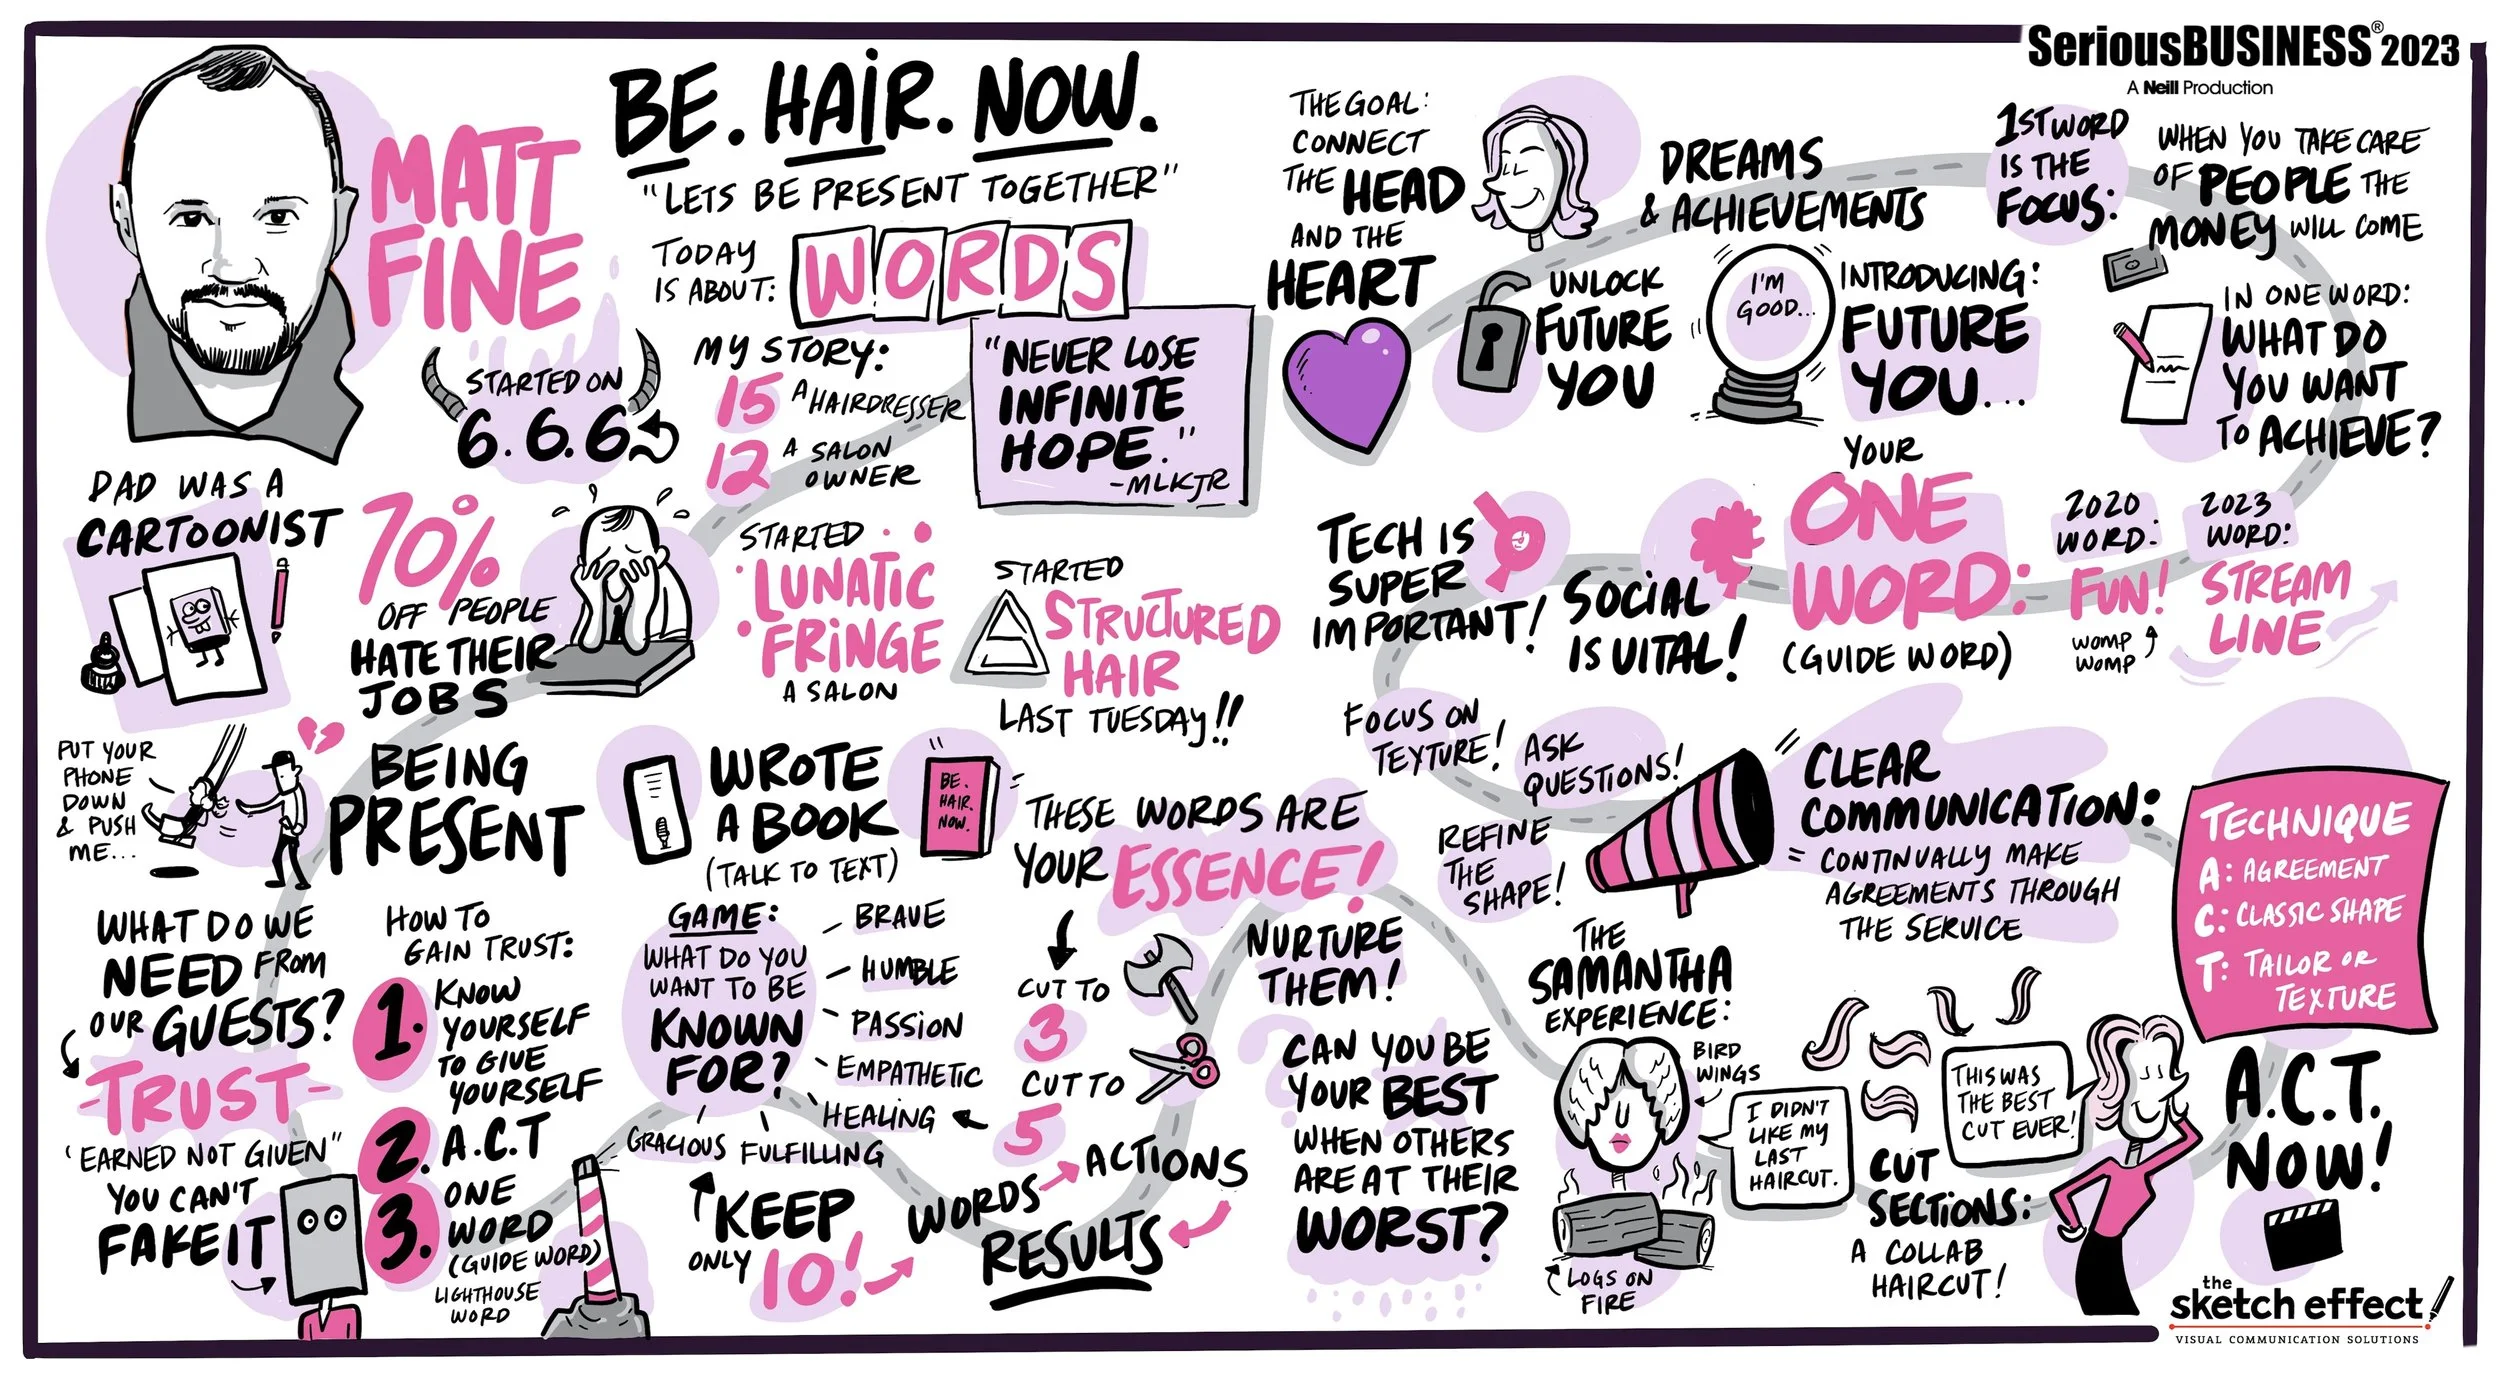 SeriousBUSINESS® 2023
A Neill Production
MATT
FINE
BE. HAIR. NOW.
"LETS BE PRESENT TOGETHER"
TODAY
IS ABOUT:
WORDS
STARTED ON
6.6.6
MY STORY:
15 A HAIRDRESSER
12 A SALON
OWNER
"NEVER LOSE
INFINITE
HOPE."
-MLKJR
DAD WAS A
CARTOONIST
70%
OFF PEOPLE
HATE THEIR
JOBS
STARTED
LUNATIC
FRINGE
A SALON
STARTED
STRUCTURED
HAIR
LAST TUESDAY!!
PUT YOUR
PHONE
DOWN
& PUSH
ME...
BEING
PRESENT
WROTE
A BOOK
(TALK TO TEXT)
BE.
HAIR.
NOW.
WHAT DO WE
NEED FROM
OUR GUESTS?
-TRUST-
"EARNED NOT GIVEN"
YOU CAN'T
FAKE IT
HOW TO
GAIN TRUST:
1. KNOW
YOURSELF
TO GIVE
YOURSELF
2. A.C.T
3. ONE
WORD
(GUIDE WORD)
LIGHTHOUSE
WORD
GAME:
WHAT DO YOU
WANT TO BE
KNOWN
FOR?
BRAVE
HUMBLE
PASSION
EMPATHETIC
HEALING
FULFILLING
GRACIOUS
KEEP
ONLY 10!
THESE WORDS ARE
YOUR ESSENCE!
CUT TO
3
CUT TO
5
WORDS
ACTIONS
RESULTS
NURTURE
THEM!
CAN YOU BE
YOUR BEST
WHEN OTHERS
ARE AT THEIR
WORST?
THE GOAL:
CONNECT
THE HEAD
AND THE
HEART
DREAMS
& ACHIEVEMENTS
UNLOCK
FUTURE
YOU
I'M
GOOD...
INTRODUCING:
FUTURE
YOU...
1ST WORD
IS THE
FOCUS:
WHEN YOU TAKE CARE
OF PEOPLE THE
MONEY WILL COME
IN ONE WORD:
WHAT DO
YOU WANT
TO ACHIEVE?
YOUR
ONE
WORD:
(GUIDE WORD)
2020
WORD:
FUN!
WOMP
WOMP
2023
WORD:
STREAM
LINE
TECH IS
SUPER
IMPORTANT!
SOCIAL
IS VITAL!
FOCUS ON
TEXTURE!
ASK
QUESTIONS!
REFINE
THE
SHAPE!
CLEAR
COMMUNICATION:
= CONTINUALLY MAKE
AGREEMENTS THROUGH
THE SERVICE
TECHNIQUE
A: AGREEMENT
C: CLASSIC SHAPE
T: TAILOR OR
TEXTURE
THE
SAMANTHA
EXPERIENCE:
BIRD
WINGS
I DIDN'T
LIKE MY
LAST
HAIRCUT.
LOGS ON
FIRE
THIS WAS
THE BEST
CUT EVER!
CUT
SECTIONS:
A COLLAB
HAIRCUT!
A.C.T.
NOW!
the
sketch effect
VISUAL COMMUNICATION SOLUTIONS